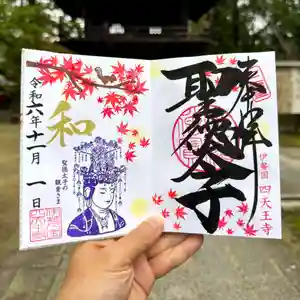 奉拝
聖徳太子
伊勢国 四天王寺
令和六年十一月一日
和
聖徳太子の
観音さま